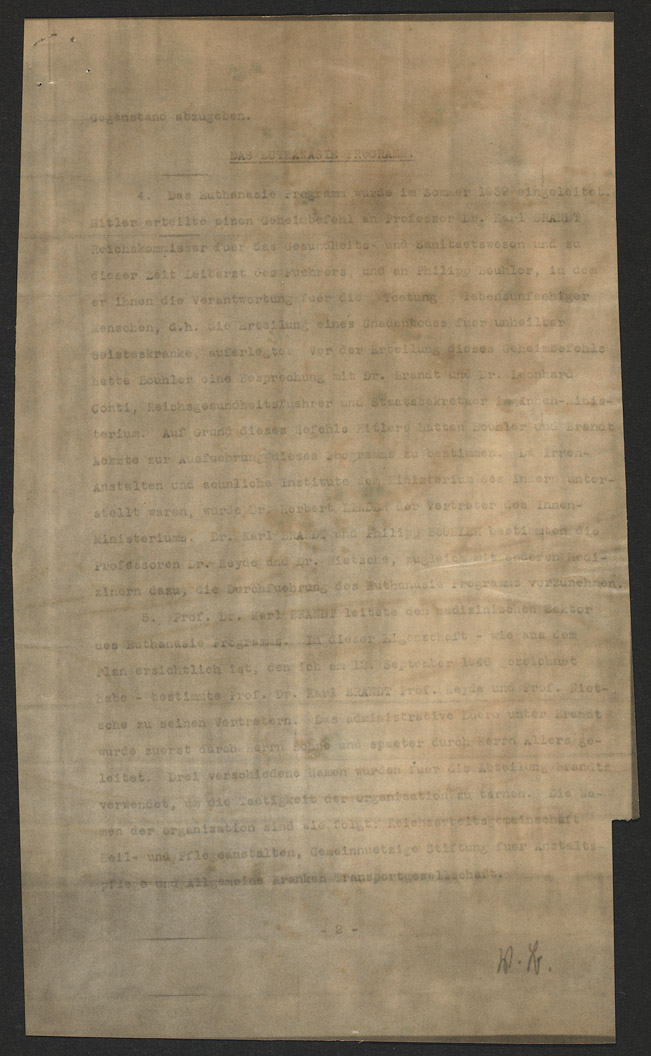 Gegenstand abzugeben.
DAS EUTHANASIE PROGRAMM.
4. Das Euthanasie Programm wurde im Sommer 1939 eingeleitet.
Hitler erteilte einen Geheimbefehl an Professor Dr. Karl BRANDT,
Reichskommissar fuer das Gesundheits- und Sanitaetswesen und zu
dieser Zeit Leibarzt des Fuehrers, und an Philipp Bouhler, in dem
er ihnen die Verantwortung fuer die Toetung lebensunfaehiger
Menschen, d.h. die Erteilung eines Gnadentodes fuer unheilbar
Geisteskranke, auferlegte. Vor der Erteilung dieses Geheimbefehls
hatte Bouhler eine Besprechung mit Dr. Brandt und Dr. Leonhard
Conti, Reichsgesundheitsfuehrer und Staatssekretaer im Innen-Minis-
terium. Auf Grund dieses Befehls Hitlers hatten Bouhler und Brandt
Aerzte zur Ausfuehrung dieses Programms zu bestimmen. Da Irren-
Anstalten und aehnliche Institute dem Ministerium des Innern unter-
stellt waren, wurde Dr. Herbert LINDEN der Vertreter des Innen-
Ministeriums. Dr. Karl BRANDT und Philipp BOUHLER bestimmten die
Professoren Dr. Heyde und Dr. Nietsche, zugleich mit anderen Medi-
zinern dazu, die Durchfuehrung des Euthanasie Programms vorzunehmen.
5. Prof. Dr. Karl BRANDT leitete den medizinischen Sektor
des Euthanasie Programms. In dieser Eigenschaft - wie aus dem
Plan ersichtlich ist, den ich am September 1946 gezeichnet
habe - bestimmte Prof. Dr. Karl BRANDT Prof. Heyde und Prof. Niet-
sche zu seinen Vertretern. Das administrative Buero unter Brandt
wurde zuerst durch Herrn Bohne und spaeter durch Herrn Allers ge-
leitet. Drei verschiedene Namen wurden fuer die Abteilung Brandts
verwendet, um die Taetigkeit der Organisation zu tarnen. Die Na-
men der Organisation sind wie folgt: Reichsarbeitsgemeinschaft
Heil- und Pflegeanstalten, Gemeinnuetzige Stiftung fuer Anstalts-
pflege und Allgemeine Kranken Transportgesellschaft.
- 2 -